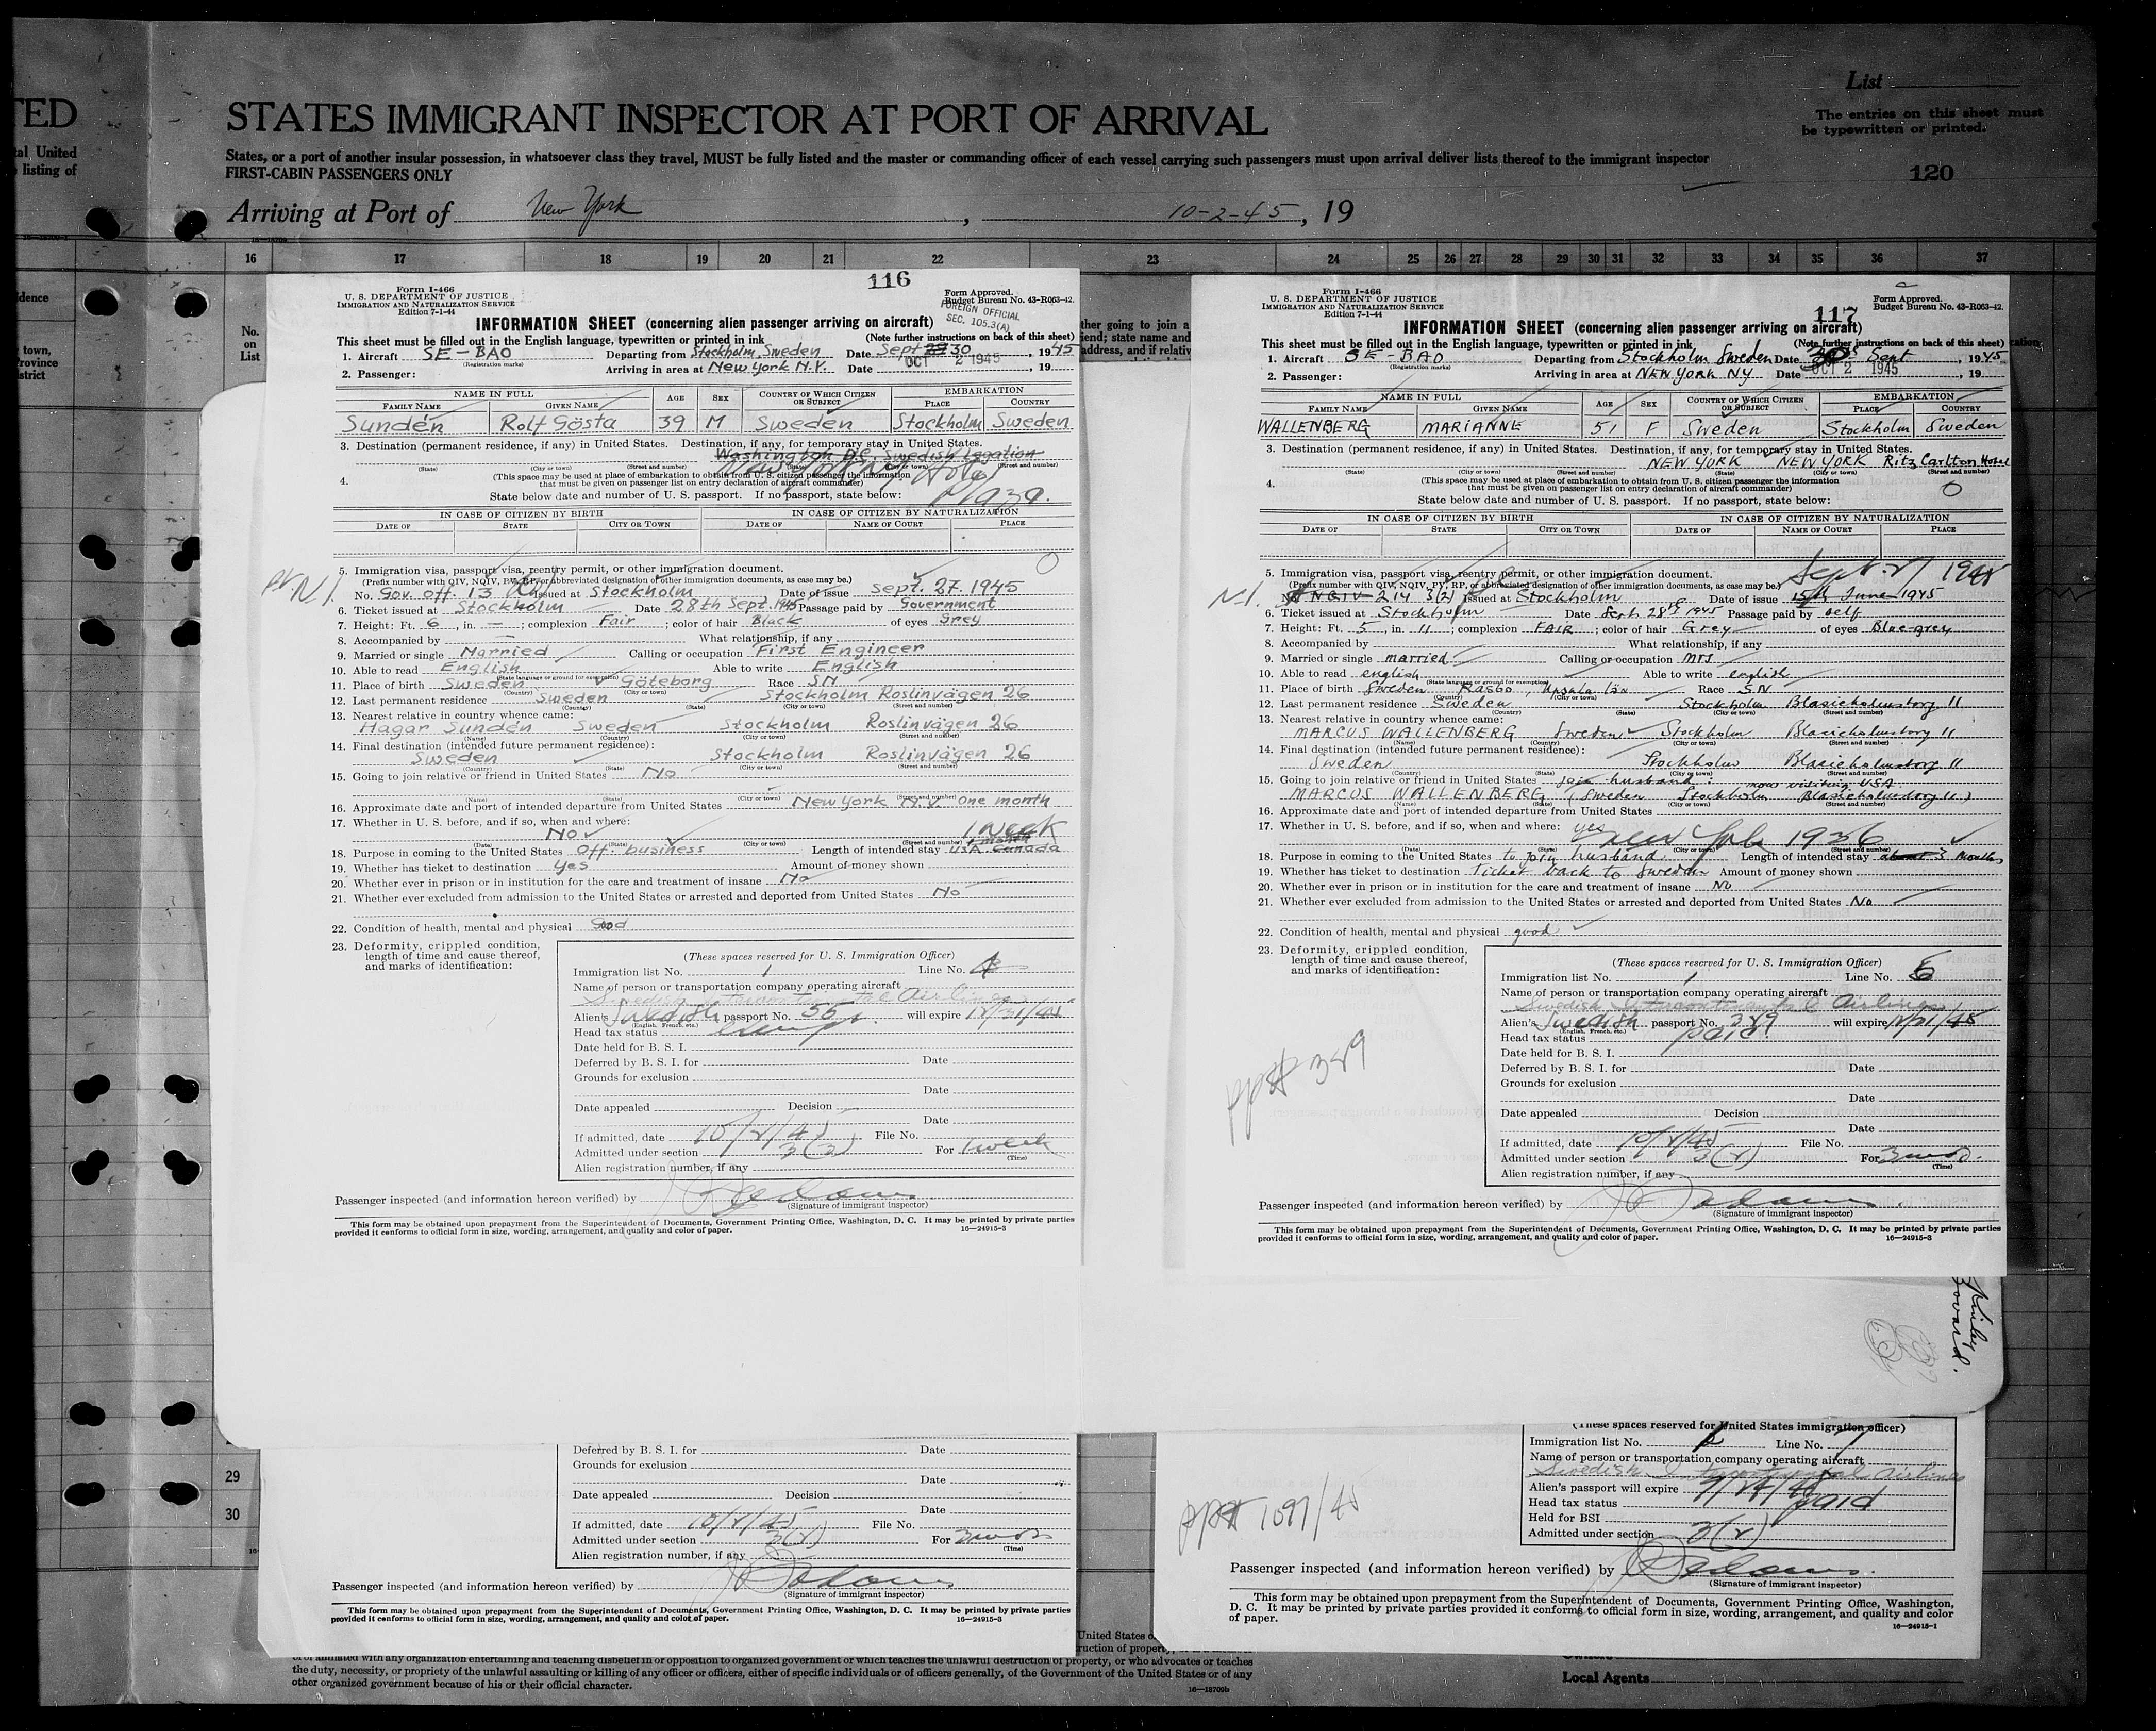 TED
tal United
listing of
List
The entries on this sheet must
be typewritten or printed.
STATES IMMIGRANT INSPECTOR AT PORT OF ARRIVAL
States, or a port of another insular possession, in whatsoever class they travel, MUST be fully listed and the master or commanding officer of each vessel carrying such passengers must upon arrival deliver lists thereof to the immigrant inspector
FIRST-CABIN PASSENGERS ONLY
120
Arriving at Port of New York, 10-2-45, 19
16 17 18 19 20 21 22 23 24 25 26 27 28 29 30 31 32 33 34 35 36 37
No.
on
List
dence
town,
Province
istrict
ther going to join a
iend; state name and
address, and if relativ
116
Form I-466
U. S. DEPARTMENT OF JUSTICE
IMMIGRATION AND NATURALIZATION SERVICE
Edition 7-1-44
Form Approved.
Budget Bureau No. 43-R063-42.
FOREIGN OFFICIAL
SEC. 105.3(A)
INFORMATION SHEET (concerning alien passenger arriving on aircraft)
This sheet must be filled out in the English language, typewritten or printed in ink (Note further instructions on back of this sheet)
1. Aircraft SE-BAO Departing from Stockholm, Sweden Date Sept 30, 1945
(Registration marks)
2. Passenger: Arriving in area at New York N.Y. Date OCT 2 1945, 19
NAME IN FULL AGE SEX COUNTRY OF WHICH CITIZEN OR SUBJECT EMBARKATION
FAMILY NAME GIVEN NAME PLACE COUNTRY
Sundén Rolf Gösta 39 M Sweden Stockholm Sweden
3. Destination (permanent residence, if any) in United States. Destination, if any, for temporary stay in United States.
Washington DC. Swedish Legation
New York Hotel
(State) (City or town) (Street and number)
4. (This space may be used at place of embarkation to obtain from U. S. citizen passenger the information
that must be given on passenger list on entry declaration of aircraft commander)
State below date and number of U. S. passport. If no passport, state below:
IN CASE OF CITIZEN BY BIRTH IN CASE OF CITIZEN BY NATURALIZATION
DATE OF STATE CITY OR TOWN DATE OF NAME OF COURT PLACE
5. Immigration visa, passport visa, reentry permit, or other immigration document.
(Prefix number with QIV, NQIV, PV, RP, or abbreviated designation of other immigration documents, as case may be.)
No. Gov. off. 13 Issued at Stockholm Date of issue Sept. 27. 1945
6. Ticket issued at Stockholm Date 28th Sept. 1945 Passage paid by Government
7. Height: Ft. 6, in. —; complexion Fair; color of hair Black of eyes Grey
8. Accompanied by — What relationship, if any
9. Married or single Married Calling or occupation First Engineer
10. Able to read English Able to write English
(State language or ground for exemption)
11. Place of birth Sweden Göteborg Race SN
(Country) (City or town)
12. Last permanent residence Sweden Stockholm Roslinvägen 26
(Country) (State) (City or town) (Street and number)
13. Nearest relative in country whence came:
Hagar Sundén Sweden Stockholm Roslinvägen 26
(Name) (Country) (City or town) (Street and number)
14. Final destination (intended future permanent residence):
Sweden Stockholm Roslinvägen 26
(Country) (State) (City or town) (Street and number)
15. Going to join relative or friend in United States No
(Name) (State) (City or town) (Street and number)
16. Approximate date and port of intended departure from United States New York N.Y. One month
17. Whether in U. S. before, and if so, when and where:
No 1 week
(Date) (State) (City or town) (Street and number)
18. Purpose in coming to the United States Off. business Length of intended stay 1 month USA Canada
19. Whether has ticket to destination Yes Amount of money shown
20. Whether ever in prison or in institution for the care and treatment of insane No
21. Whether ever excluded from admission to the United States or arrested and deported from United States No
22. Condition of health, mental and physical Good
23. Deformity, crippled condition,
length of time and cause thereof,
and marks of identification:
(These spaces reserved for U. S. Immigration Officer)
Immigration list No. 1 Line No. 4
Name of person or transportation company operating aircraft
Swedish Intercontinental Airlines
Alien's Swedish passport No. will expire
(English, French, etc.)
Head tax status exempt
Date held for B. S. I.
Deferred by B. S. I. for Date
Grounds for exclusion
Date
Date appealed Decision
Date
If admitted, date 10/2/45 File No.
Admitted under section 3(2) For 1 week
(Time)
Alien registration number, if any
Passenger inspected (and information hereon verified) by
(Signature of immigrant inspector)
This form may be obtained upon prepayment from the Superintendent of Documents, Government Printing Office, Washington, D. C. It may be printed by private parties
provided it conforms to official form in size, wording, arrangement, and quality and color of paper. 16—24915-3
117
Form I-466
U. S. DEPARTMENT OF JUSTICE
IMMIGRATION AND NATURALIZATION SERVICE
Edition 7-1-44
Form Approved.
Budget Bureau No. 43-R063-42.
INFORMATION SHEET (concerning alien passenger arriving on aircraft)
This sheet must be filled out in the English language, typewritten or printed in ink (Note further instructions on back of this sheet)
1. Aircraft SE-BAO Departing from Stockholm Sweden Date 30 Sept, 1945
(Registration marks)
2. Passenger: Arriving in area at NEW YORK NY Date OCT 2 1945, 19
NAME IN FULL AGE SEX COUNTRY OF WHICH CITIZEN OR SUBJECT EMBARKATION
FAMILY NAME GIVEN NAME PLACE COUNTRY
WALLENBERG MARIANNE 51 F Sweden Stockholm Sweden
3. Destination (permanent residence, if any) in United States. Destination, if any, for temporary stay in United States.
NEW YORK NEW YORK Ritz Carlton Hotel
(State) (City or town) (Street and number) (State) (City or town) (Street and number)
4. (This space may be used at place of embarkation to obtain from U. S. citizen passenger the information
that must be given on passenger list on entry declaration of aircraft commander)
State below date and number of U. S. passport. If no passport, state below:
IN CASE OF CITIZEN BY BIRTH IN CASE OF CITIZEN BY NATURALIZATION
DATE OF STATE CITY OR TOWN DATE OF NAME OF COURT PLACE
5. Immigration visa, passport visa, reentry permit, or other immigration document. Sept 27 1945
(Prefix number with QIV, NQIV, PV, RP, or abbreviated designation of other immigration documents, as case may be.)
No. NQIV 214 3(2) Issued at Stockholm Date of issue 15th June 1945
6. Ticket issued at Stockholm Date Sept 28th 1945 Passage paid by self
7. Height: Ft. 5, in. 11; complexion FAIR; color of hair Grey of eyes Blue-grey
8. Accompanied by What relationship, if any
9. Married or single married Calling or occupation Mrs
10. Able to read english Able to write english
(State language or ground for exemption)
11. Place of birth Sweden Rasbo, Upsala län Race SN
(Country) (City or town)
12. Last permanent residence Sweden Stockholm Blasieholmstorg 11
(Country) (State) (City or town) (Street and number)
13. Nearest relative in country whence came:
MARCUS WALLENBERG Sweden Stockholm Blasieholmstorg 11
(Name) (Country) (City or town) (Street and number)
14. Final destination (intended future permanent residence):
Sweden Stockholm Blasieholmstorg 11
(Country) (State) (City or town) (Street and number)
15. Going to join relative or friend in United States: join husband: now visiting USA
MARCUS WALLENBERG (Sweden Stockholm Blasieholmstorg 11)
(Name) (State) (City or town) (Street and number)
16. Approximate date and port of intended departure from United States
17. Whether in U. S. before, and if so, when and where: yes New York 1936
(Date) (State) (City or town) (Street and number)
18. Purpose in coming to the United States to join husband Length of intended stay about 3 months
19. Whether has ticket to destination Ticket back to Sweden Amount of money shown
20. Whether ever in prison or in institution for the care and treatment of insane No
21. Whether ever excluded from admission to the United States or arrested and deported from United States No
22. Condition of health, mental and physical good
23. Deformity, crippled condition,
length of time and cause thereof,
and marks of identification:
(These spaces reserved for U. S. Immigration Officer)
Immigration list No. 1 Line No.
Name of person or transportation company operating aircraft
Swedish Intercontinental Airlines
Alien's Swedish passport No. 389 will expire
(English, French, etc.)
Head tax status paid
Date held for B. S. I.
Deferred by B. S. I. for Date
Grounds for exclusion
Date
Date appealed Decision
Date
If admitted, date 10/2/45 File No.
Admitted under section 3(2) For 3 mos.
(Time)
Alien registration number, if any
pp# 389
Passenger inspected (and information hereon verified) by
(Signature of immigrant inspector)
This form may be obtained upon prepayment from the Superintendent of Documents, Government Printing Office, Washington, D. C. It may be printed by private parties
provided it conforms to official form in size, wording, arrangement, and quality and color of paper. 16—24915-3
29
30
Deferred by B. S. I. for Date
Grounds for exclusion
Date
Date appealed Decision
Date
If admitted, date 10/2/45 File No.
Admitted under section 3(2) For 3 mos
(Time)
Alien registration number, if any
Passenger inspected (and information hereon verified) by
(Signature of immigrant inspector)
This form may be obtained upon prepayment from the Superintendent of Documents, Government Printing Office, Washington, D. C. It may be printed by private parties
provided it conforms to official form in size, wording, arrangement, and quality and color of paper. 16—24915-3
(These spaces reserved for United States immigration officer)
Immigration list No. Line No. 7
Name of person or transportation company operating aircraft
Swedish Intercontinental Airlines
Alien's passport will expire
Head tax status paid
Held for BSI
Admitted under section 3(2)
pp# 1097/45
Passenger inspected (and information hereon verified) by
(Signature of immigrant inspector)
This form may be obtained upon prepayment from the Superintendent of Documents, Government Printing Office, Washington,
D. C. It may be printed by private parties provided it conforms to official form in size, wording, arrangement, and quality and color
of paper. 16—24915-1
United States o
ruction of property,
or affiliated with any organization entertaining and teaching disbelief in or opposition to organized government or which teaches the unlawful destruction of property, or who advocates or teaches
the duty, necessity, or propriety of the unlawful assaulting or killing of any officer or officers, either of specific individuals or of officers generally, of the Government of the United States or of any
other organized government because of his or their official character.
16—18709b
Local Agents